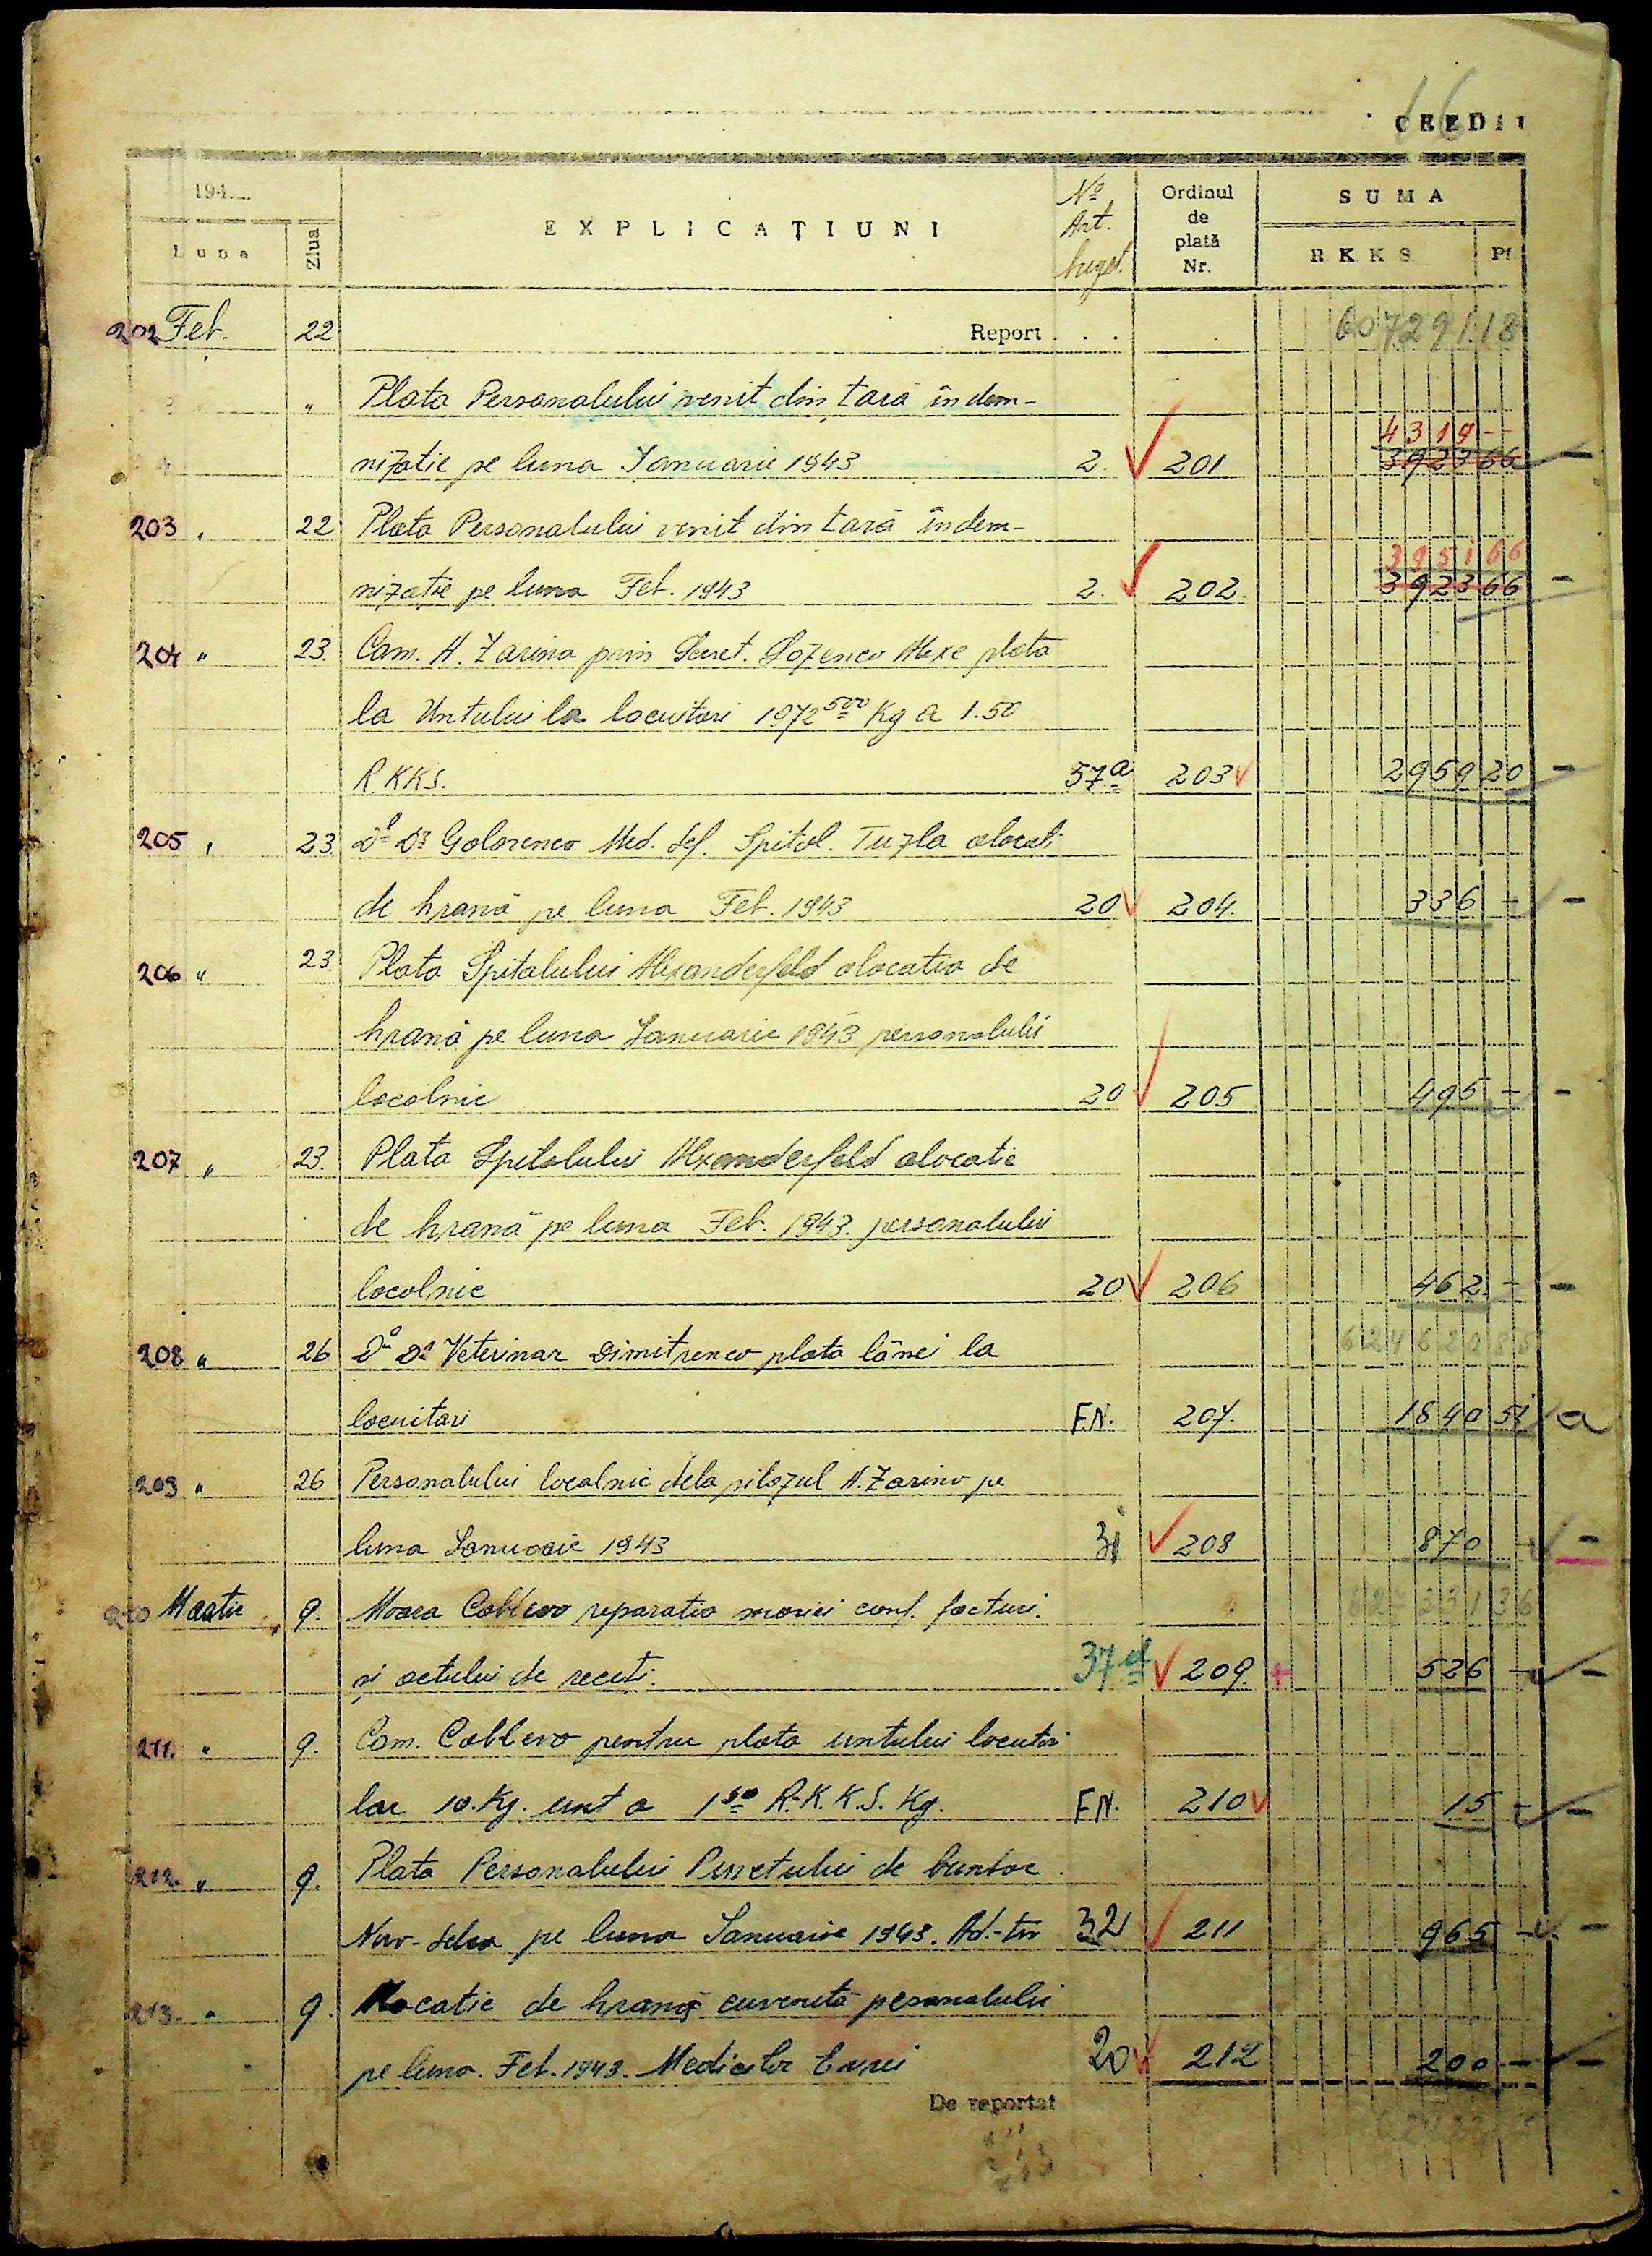 16
CREDIT
194....
Luna
Ziua
EXPLICAȚIUNI
No Art. buget.
Ordinul de plată Nr.
SUMA
RKKS Pf
202 Feb. 22 Report . . . 60729118
" Plata Personalului venit din țară indem-
4319--
nizatie pe luna Ianuarie 1943 2. 201 392366 -
203 " 22 Plata Personalului venit din țară indem-
395166
nizatie pe luna Feb. 1943 2. 202. 392366 -
204 " 23. Com. A. Zarina prin Secret. Lozenco Alexe plata
la Untului la locuitori 1972 500 Kg a 1.50
R.KKS. 57.a 203 295920 -
205 " 23. Dl Dr Golorenco Med. Șef. Spital. Tuzla alocati
de hrană pe luna Feb. 1943 20 204. 336 - -
206 " 23. Plata Spitalului Alexanderfeld alocatia de
hrană pe luna Ianuarie 1943 personalului
localnic 20 205 495 - -
207 " 23. Plata Spitalului Alexanderfeld alocatie
de hrană pe luna Feb. 1943. personalului
localnic 20 206 462.- -
62462085
208 " 26 Dr Veterinar Dimitrenco plata lânei la
locuitori F.N. 207. 184051
209 " 26 Personalului localnic dela silozul A. Zarino pe
luna Ianuarie 1943 31 208 870 - -
210 Martie 9. Moara Coblevo reparatia morii conf. facturi.
și actului de receti. 37 d 209. + 526 - -
211. " 9. Com. Coblevo pentru plata untului locuito
lor 10.Kg. unt a 1 50 R.K.K.S. Kg. F.N. 210 15 - -
212. " 9. Plata Personalului Punctului de
pe luna Ianuarie 1943. 32 211 965 - -
213. " 9. Alocatie de hrană cuvenită pesonalului
pe luna. Feb. 1943. 20 212 200 - -
De reportat